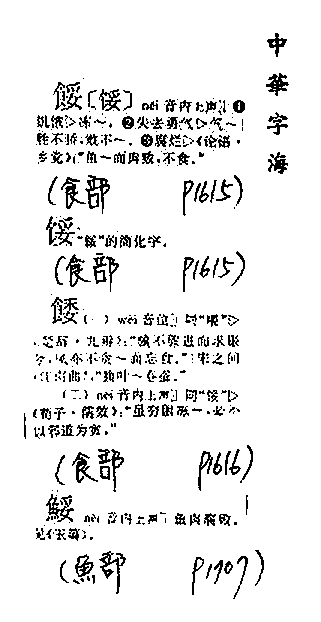 中華字海
餒〔馁〕něi 音内上声 ❶
饥饿▷冻～。❷失去勇气▷气～｜
胜不骄,败不～。❸腐烂▷《论语·
乡党》:"鱼～而肉败,不食。"
(食部 P1615)
馁 "餒"的简化字。
(食部 P1615)
餧 (一) wèi 音位 同"喂"▷
《楚辞·九辩》:"骥不骤进而求服
兮,凤亦不贪～而忘食。"
(二) něi 音内上声 同"馁"▷
《荀子·儒效》:"虽穷困冻～,必不
以邪道为贪。"
(食部 P1616)
鮾 něi 音内上声 鱼肉腐败。
见《玉篇》。
(魚部 P1707)